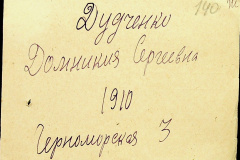 140
Дудченко
Домникия Сергеевна
1910
Черноморская 3